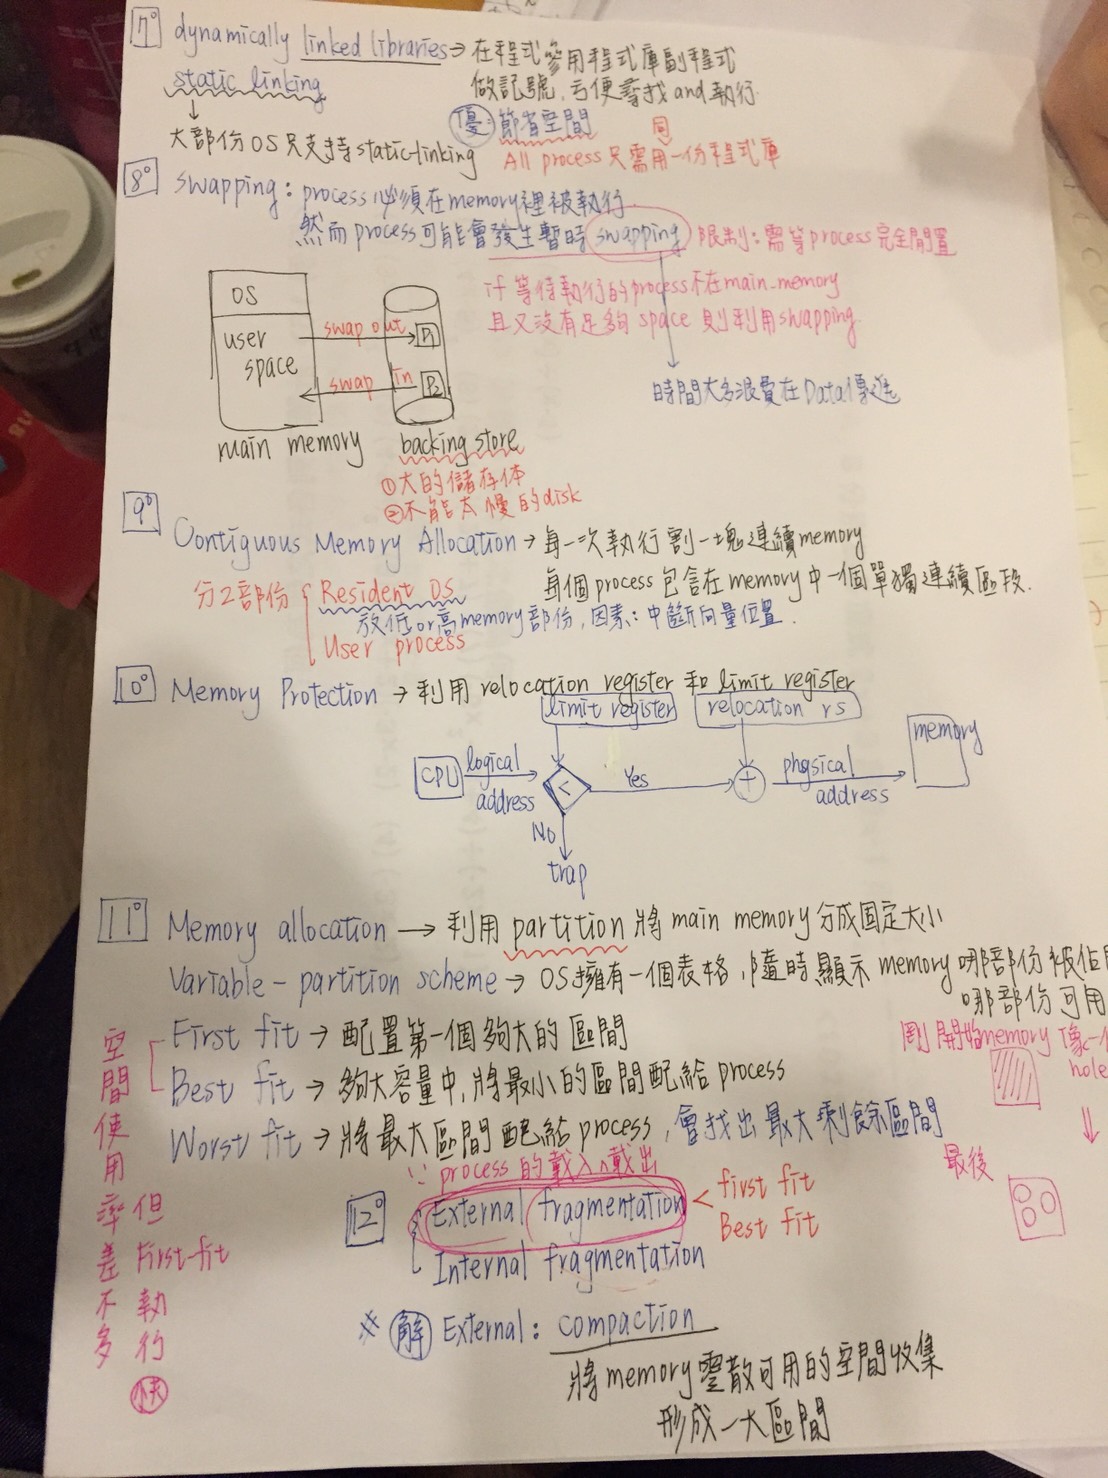 7° dynamically linked libraries → 在程式參用程式庫副程式
static linking
做記號,方便尋找and執行.
優: 節省空間
同
大部份OS只支持static-linking
All process 只需用一份程式庫
8° swapping: process必須在memory裡被執行.
然而process可能會發生暫時swapping
限制:需等process完全閒置
if 等待執行的process不在main-memory
且又沒有足夠space則利用swapping.
時間大多浪費在Data傳送
OS
user space
swap out
P1
swap in
P2
main memory
backing store
①大的儲存体
②不能太慢的disk
9° Contiguous Memory Allocation → 每一次執行割一塊連續memory
每個process包含在memory中一個單獨連續區段.
分2部份
Resident OS
放低or高memory部份,因素:中斷向量位置.
User process
10° Memory Protection → 利用relocation register 和 limit register
limit register
relocation rs
memory
CPU
logical address
<
Yes
+
physical address
No
trap
11° Memory allocation → 利用partition將main memory分成固定大小
Variable-partition scheme → OS擁有一個表格,隨時顯示memory哪部份被佔
哪部份可用
First fit → 配置第一個夠大的區間
Best fit → 夠大容量中,將最小的區間配給process
Worst fit → 將最大區間配給process,會找出最大剩餘區間
空間使用率差不多
但First-fit執行快
剛開始memory像一
hole
⇓
最後
∵process的載入、載出
12° External fragmentation < first fit
Best fit
Internal fragmentation
※ 解 External: compaction
將memory零散可用的空間收集
形成一大區間